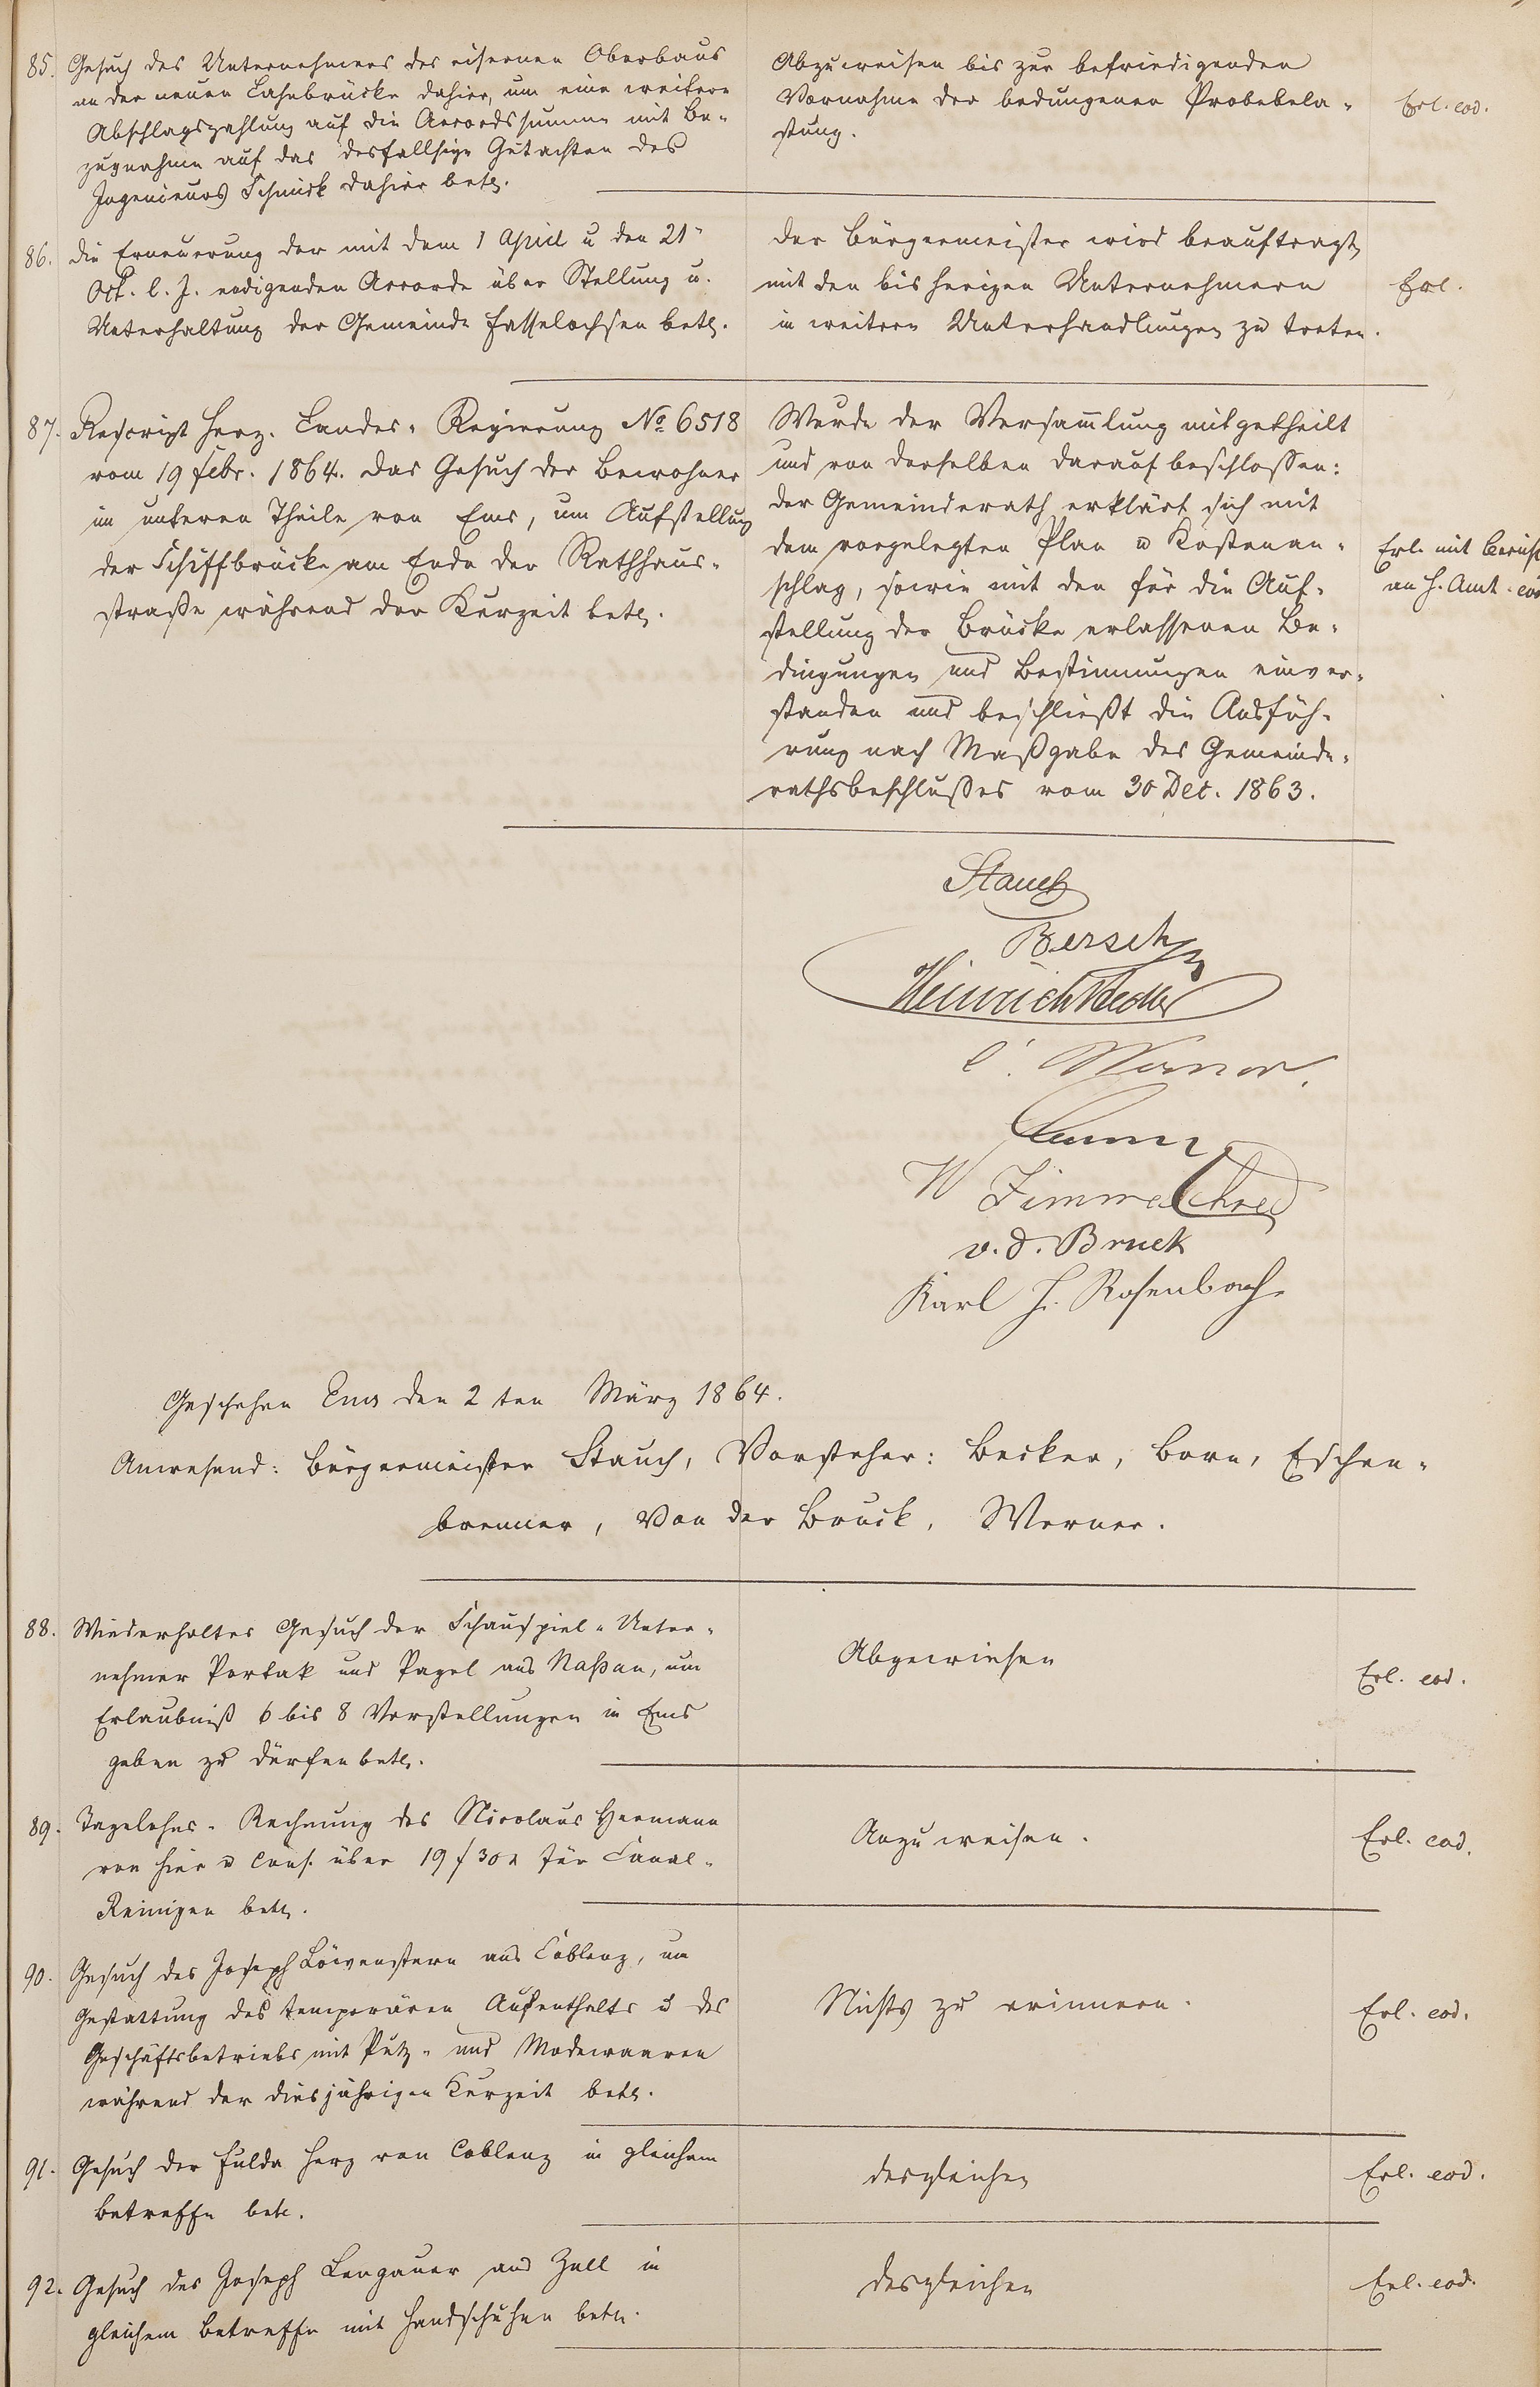 85. Gesuch des Unternehmers des eisernen Oberbaus
an der neuen Lahnbrücke dahier, um eine weitere
Abschlagszahlung auf die Accordssumme mit Be-
zugnahme auf das desfallsige Gutachten des
Ingenieurs Schmick dahier betr.
Abzuweisen bis zur befriedigenden
Vornahme der bedungenen Probebela-
stung.
Erl. eod.
86. Die Erneuerung der mit dem 1 April u den 21"
Oct. l. J. endigenden Accorde über Stellung u.
Unterhaltung der Gemeinde Fasselochsen betr.
Der Bürgermeister wird beauftragt
mit den bisherigen Unternehmern
in weitere Unterhandlungen zu treten.
Erl.
87. Rescript Herz. Landes-Regierung No 6518
vom 19 Febr. 1864. Das Gesuch der Bewohner
im unteren Theile von Ems, um Aufstellung
der Schiffbrücke am Ende der Rathhaus-
straße während der Kurzeit betr.
Wurde der Versamlung mitgetheilt
und von derselben darauf beschlossen:
Der Gemeinderath erklärt sich mit
dem vorgelegten Plan u Kostenan-
schlag, sowie mit den für die Auf-
stellung der Brücke erlassenen Be-
dingungen und Bestimmungen einver-
standen und beschließt die Ausfüh-
rung nach Maßgabe des Gemeinde-
rathsbeschlußes vom 30 Dec. 1863.
Erl. mit Bericht
an H. Amt. eod
Stauch
Bersch
Heinrich Becker
C. Werner.
W Zimmerschied
v. d. Bruck
Karl H. Rosenbach
Geschehen Ems den 2 ten März 1864.
Anwesend: Bürgermeister Stauch, Vorsteher: Becker, Born, Eschen-
brenner, Von der Bruck, Werner.
88. Wiederholtes Gesuch der Schauspiel-Unter-
nehmer Portak und Pagel aus Naßau, um
Erlaubniß 6 bis 8 Vorstellungen in Ems
geben zu dürfen betr.
Abgewiesen
Erl. eod.
89. Tagelohns-Rechnung des Nicolaus Hermann
von hier u Cons. über 19 f 30 x für Canal-
Reinigen betr.
Anzuweisen.
Erl. eod.
90. Gesuch des Joseph Löwenstern aus Coblenz, um
Gestattung des temporären Aufenthalts u des
Geschäftsbetriebs mit Putz- und Modewaaren
während der diesjährigen Kurzeit betr.
Nichts zu erinnern.
Erl. eod.
91. Gesuch der Fulda Herz von Coblenz in gleichem
Betreffe betr.
desgleichen
Erl. eod.
92. Gesuch des Joseph Lengauer aus Zell in
gleichem Betreffe mit Handschuhen betr.
desgleichen
Erl. eod.